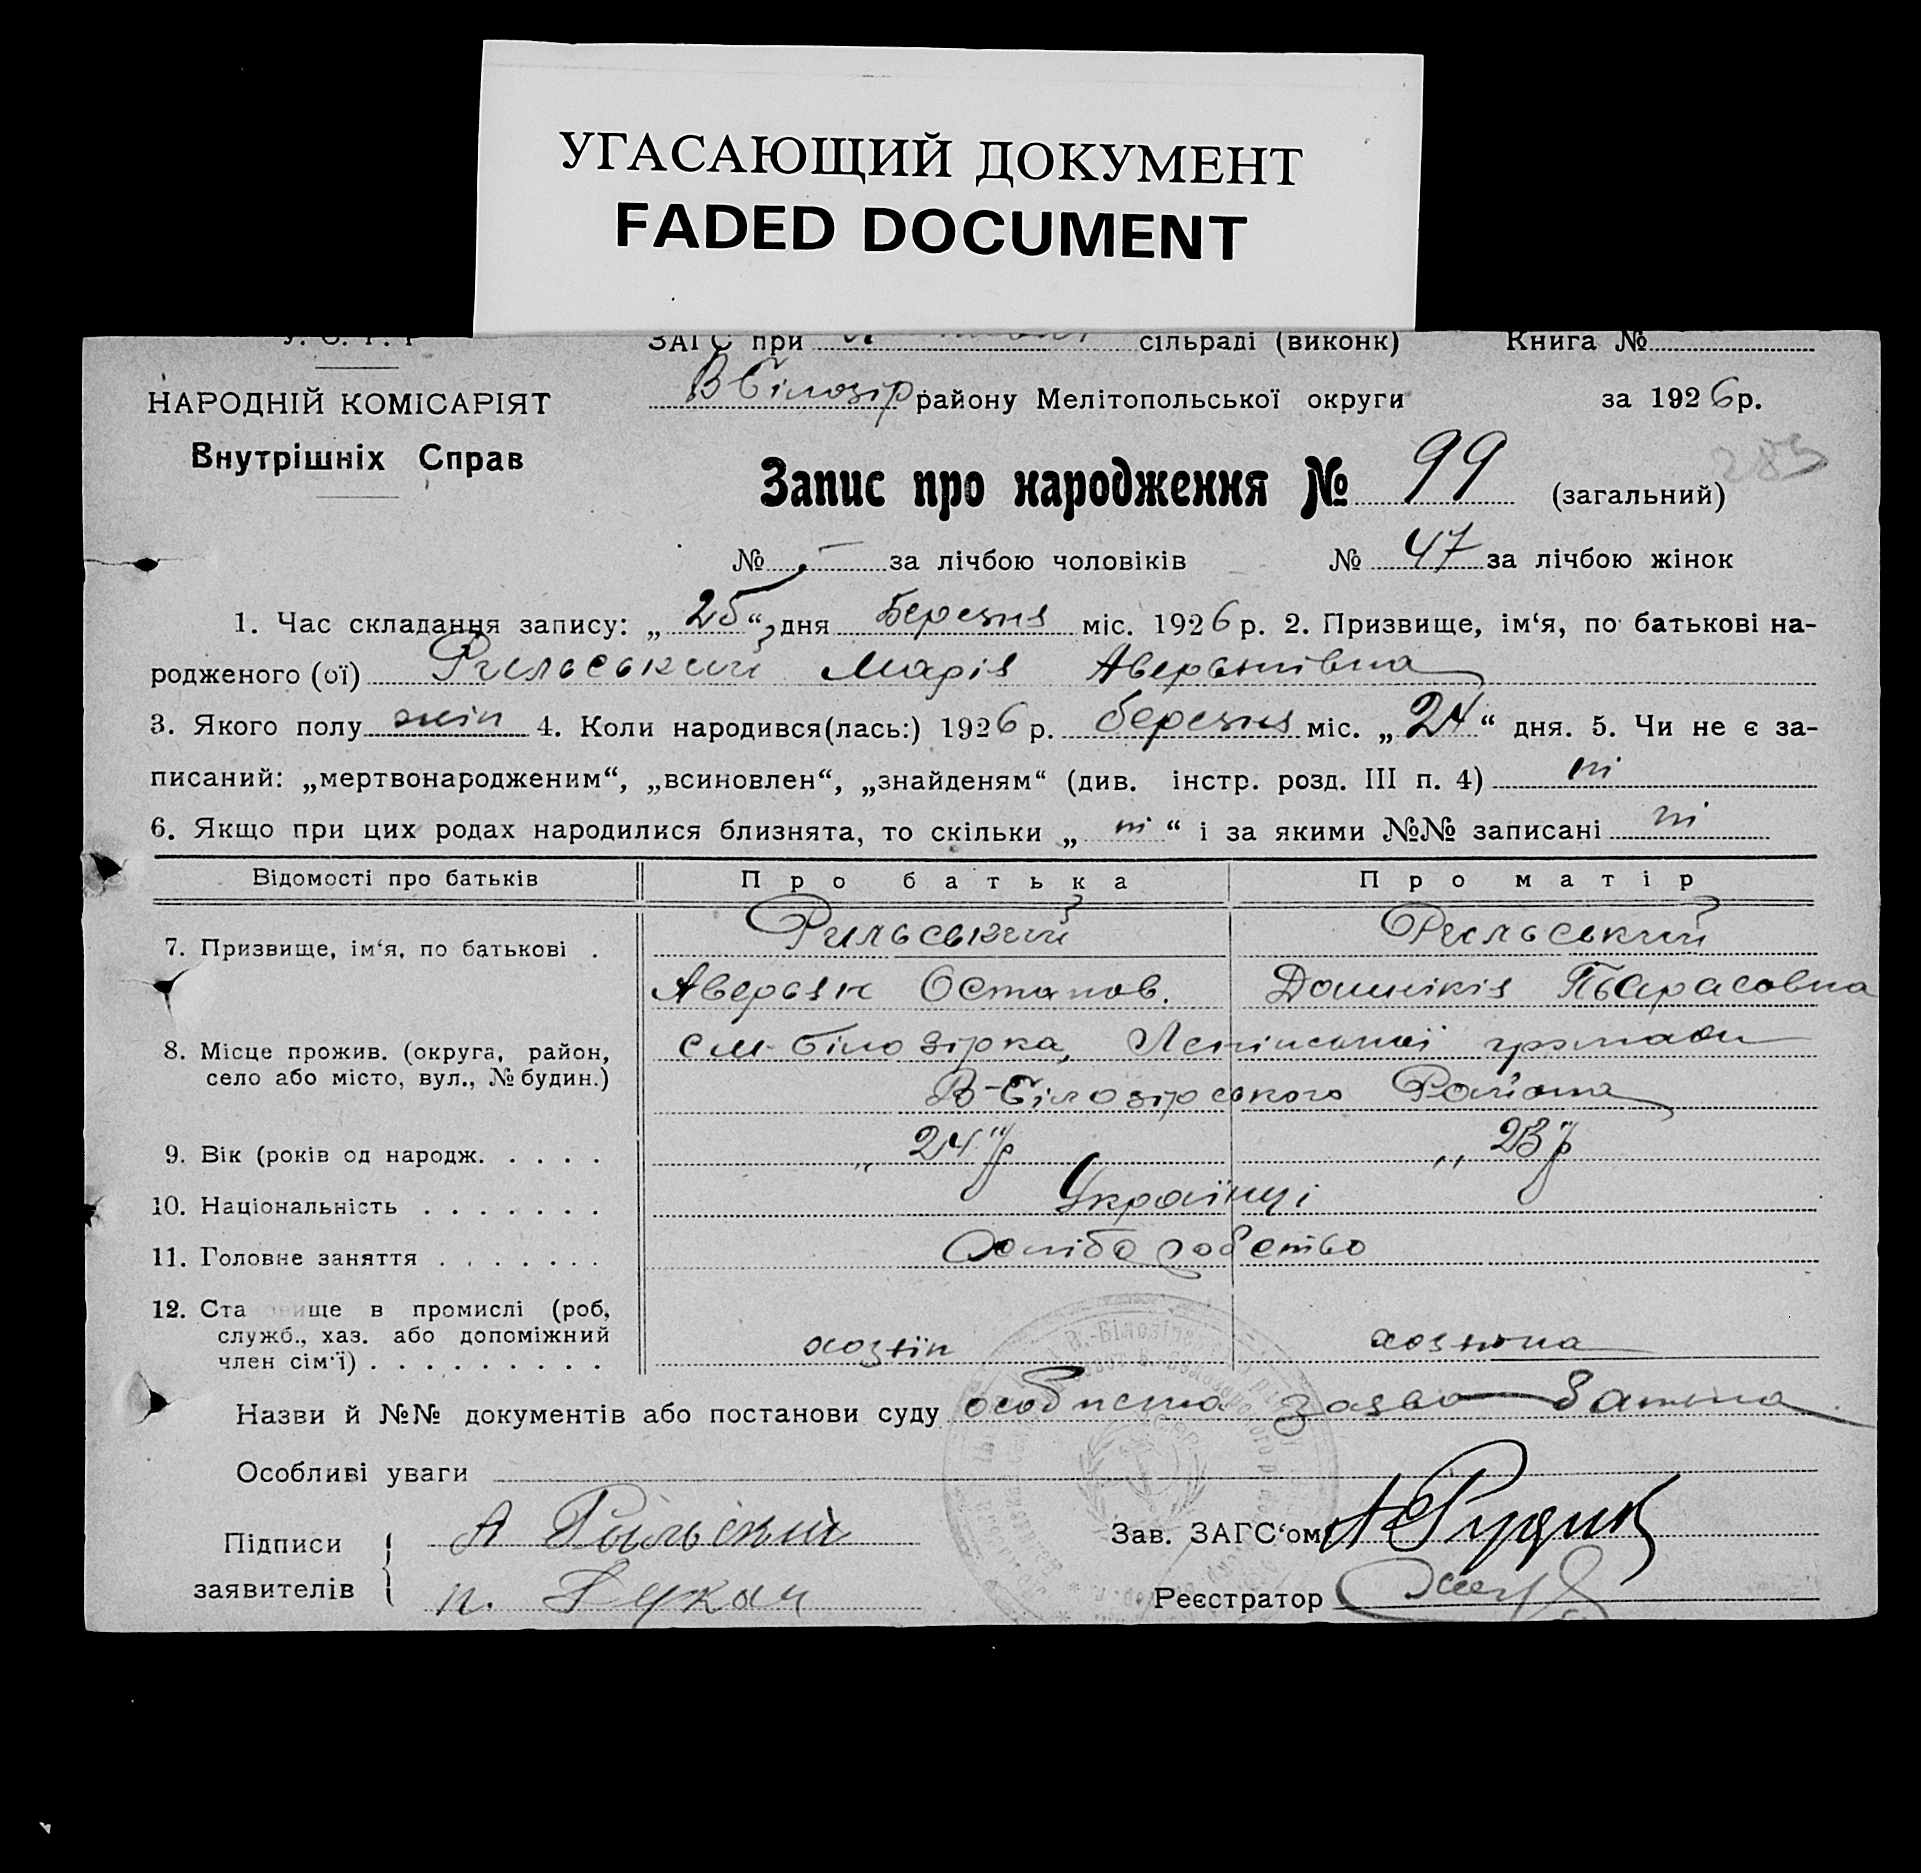 УГАСАЮЩИЙ ДОКУМЕНТ
FADED DOCUMENT
ЗАГС при сільраді (виконк) Книга №
НАРОДНІЙ КОМІСАРІЯТ
В Білозір району Мелітопольської округи за 1926 р.
Внутрішніх Справ
Запис про народження № 99 (загальний)
№ — за лічбою чоловіків № 47 за лічбою жінок
1. Час складання запису: „25“ дня Березня міс. 1926 р. 2. Призвище, ім‘я, по батькові на-
родженого (ої) Рильський Марія Аверянівна
3. Якого полу жін 4. Коли народився(лась:) 1926 р. березня міс. „24“ дня. 5. Чи не є за-
писаний: „мертвонародженим“, „всиновлен“, „знайденям“ (див. інстр. розд. III п. 4) ні
6. Якщо при цих родах народилися близнята, то скільки „ні“ і за якими №№ записані ні
Відомості про батьків Про батька Про матір
7. Призвище, ім‘я, по батькові . Рильський Рильський
Аверьян Остапов. Домнікія Тарасовна
8. Місце прожив. (округа, район, село або місто, вул., № будин.) см-білозірка, Ленінської громади
В-Білозірського Района
9. Вік (років од народж. . . . . 24 р 23 р
10. Національність . . . . . . . Українці
11. Головне заняття . . . . . . . Хліборобство
12. Ста ище в промислі (роб,
служб., хаз. або допоміжний
член сім‘ї) . . . . . . . . . . хозяїн хозяйка
Назви й №№ документів або постанови суду особиста заява батька
Особливі уваги
Підписи заявителів А Рыльский Зав. ЗАГС‘ом
п. Реєстратор